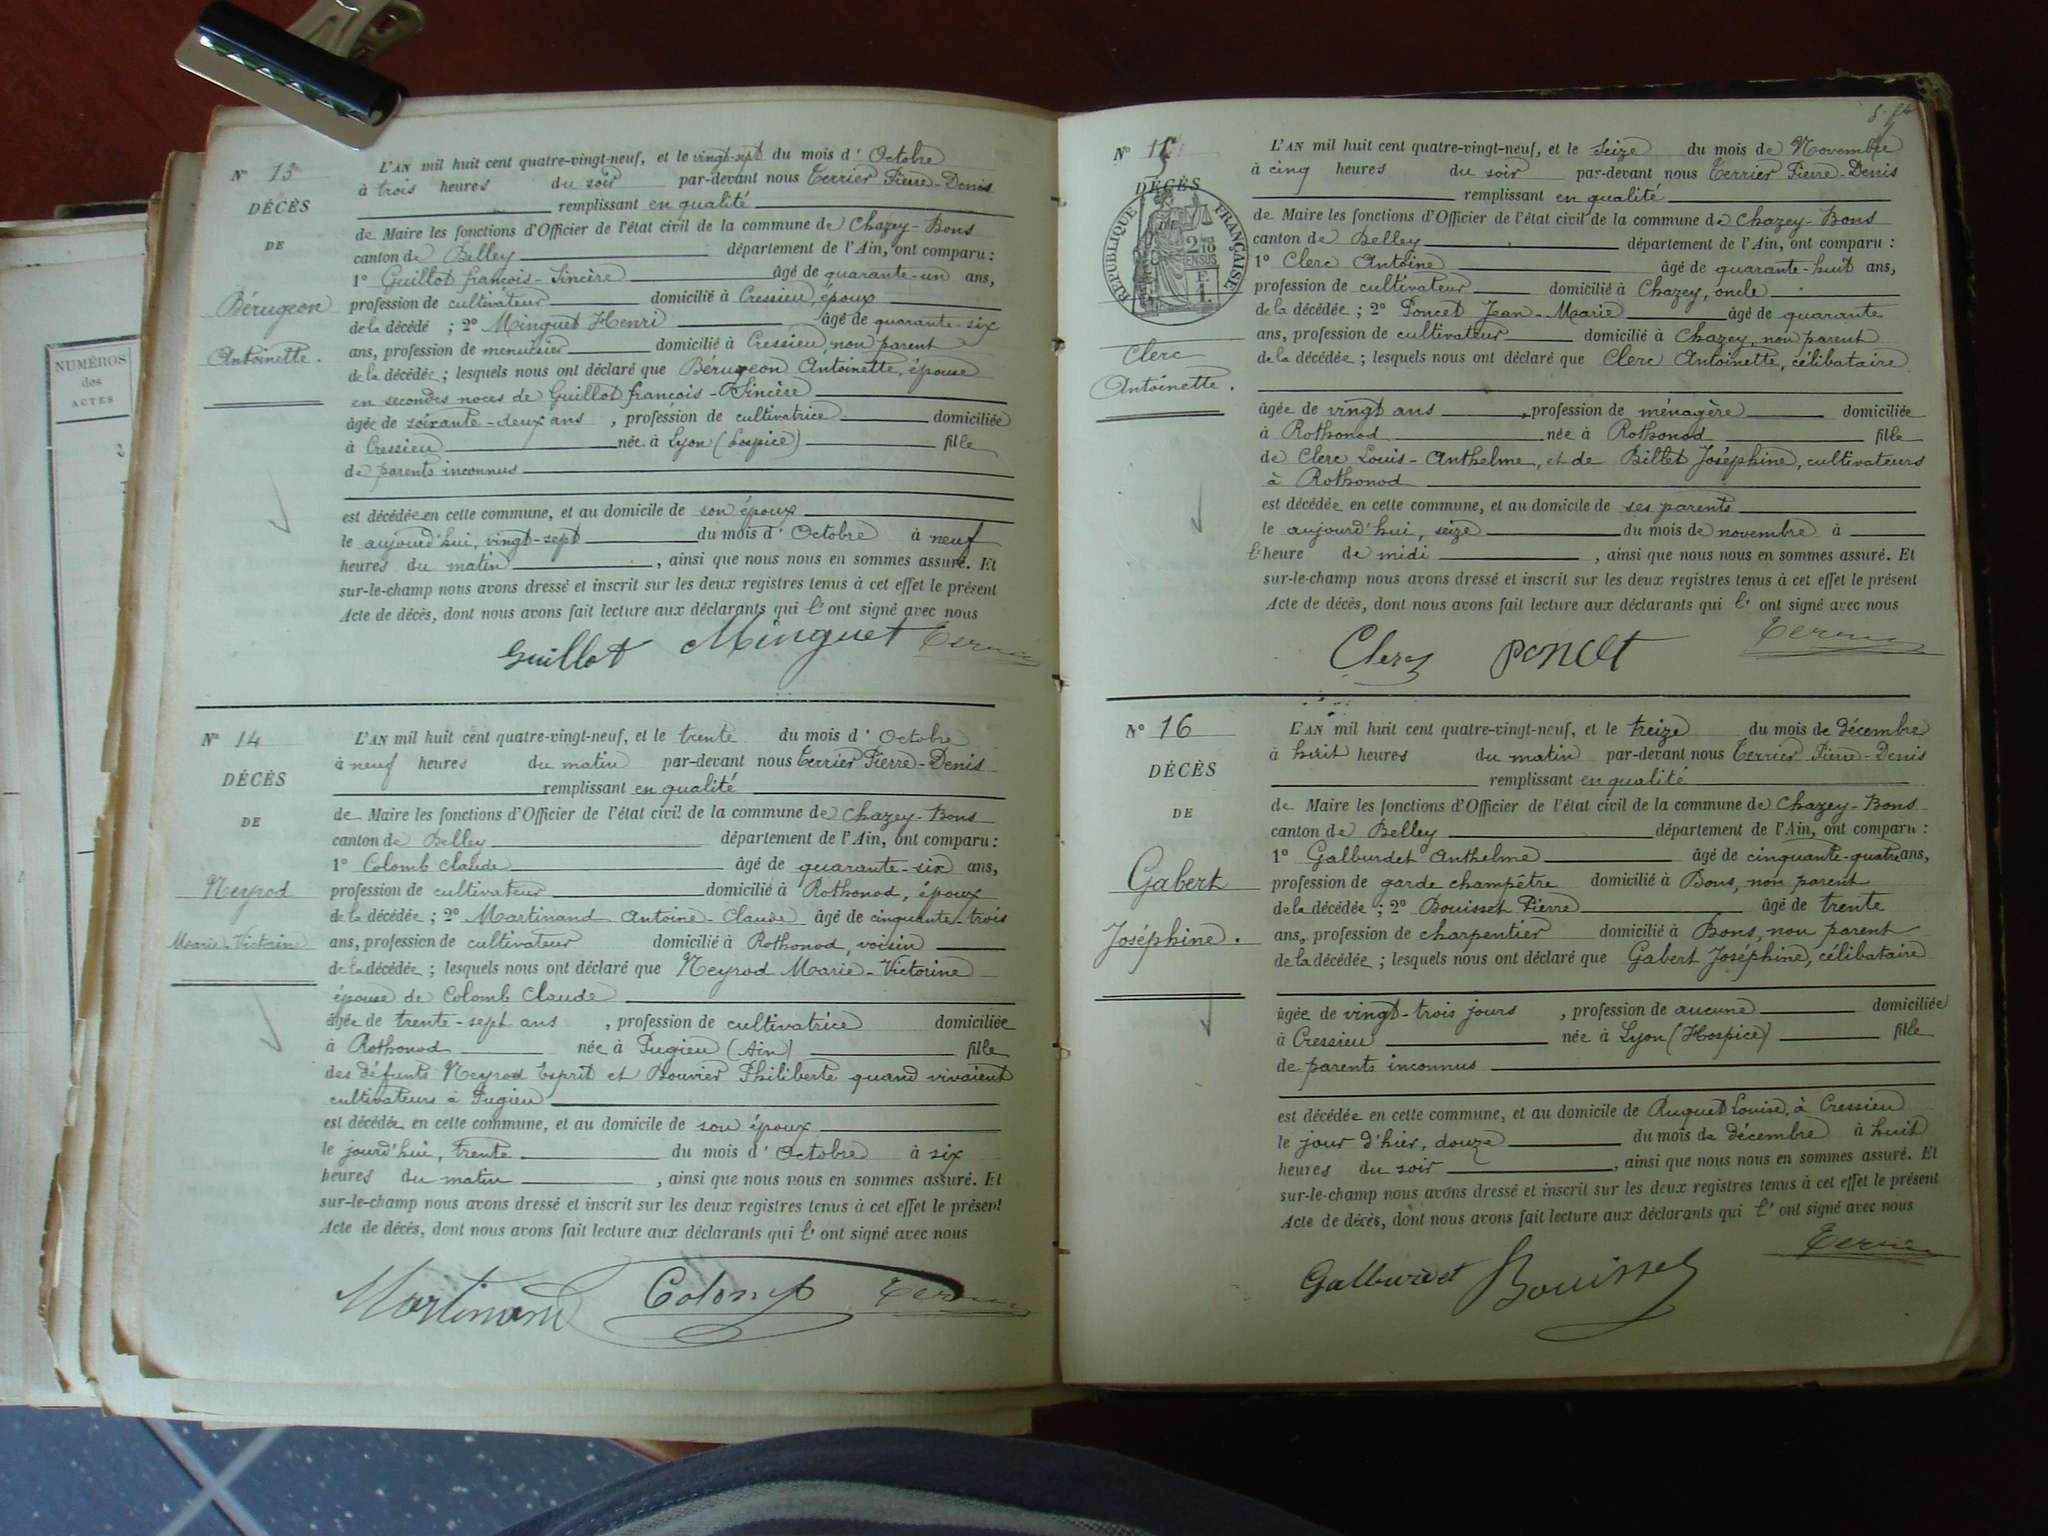 NUMÉROS
des
ACTES
N° 13
DÉCÈS
DE
Bérugeon
Antoinette.
L'AN mil huit cent quatre-vingt-neuf, et le vingt-sept du mois d'Octobre
à trois heures du soir par-devant nous Terrier Pierre-Denis
remplissant en qualité
de Maire les fonctions d'Officier de l'état civil de la commune de Chazey-Bons
canton de Belley département de l'Ain, ont comparu :
1° Guillot françois-Sincère âgé de quarante-un ans,
profession de cultivateur domicilié à Cressieu, époux
de la décédé ; 2° Minguet Henri âgé de quarante-six
ans, profession de menuisier domicilié à Cressieu, non parent
de la décédée ; lesquels nous ont déclaré que Bérugeon Antoinette, épouse
en secondes noces de Guillot françois-Sincère
âgée de soixante-deux ans, profession de cultivatrice domiciliée
à Cressieu née à Lyon (hospice) fille
de parents inconnus
est décédée en cette commune, et au domicile de son époux
le aujourd'hui, vingt-sept du mois d'Octobre à neuf
heures du matin, ainsi que nous nous en sommes assuré. Et
sur-le-champ nous avons dressé et inscrit sur les deux registres tenus à cet effet le présent
Acte de décès, dont nous avons fait lecture aux déclarants qui l'ont signé avec nous
Guillot Minguet Terrier
N° 14
DÉCÈS
DE
Neyrod
Marie-Victorine
L'AN mil huit cent quatre-vingt-neuf, et le trente du mois d'Octobre
à neuf heures du matin par-devant nous Terrier Pierre-Denis
remplissant en qualité
de Maire les fonctions d'Officier de l'état civil de la commune de Chazey-Bons
canton de Belley département de l'Ain, ont comparu :
1° Colomb Claude âgé de quarante-six ans,
profession de cultivateur domicilié à Rothonod, époux
de la décédée ; 2° Martinand Antoine-Claude âgé de cinquante-trois
ans, profession de cultivateur domicilié à Rothonod, voisin
de la décédée ; lesquels nous ont déclaré que Neyrod Marie-Victorine
épouse de Colomb Claude
âgée de trente-sept ans, profession de cultivatrice domiciliée
à Rothonod née à Pugieu (Ain) fille
des défunts Neyrod Esprit et Bouvier Philiberte quand vivaient
cultivateurs à Pugieu
est décédée en cette commune, et au domicile de son époux
le jourd'hui, trente du mois d'Octobre à six
heures du matin, ainsi que nous nous en sommes assuré. Et
sur-le-champ nous avons dressé et inscrit sur les deux registres tenus à cet effet le présent
Acte de décès, dont nous avons fait lecture aux déclarants qui l'ont signé avec nous
Martinand Colomb Terrier
N° 15
DÉCÈS
DE
RÉPUBLIQUE FRANÇAISE
Clerc
Antoinette.
L'AN mil huit cent quatre-vingt-neuf, et le seize du mois de Novembre
à cinq heures du soir par-devant nous Terrier Pierre-Denis
remplissant en qualité
de Maire les fonctions d'Officier de l'état civil de la commune de Chazey-Bons
canton de Belley département de l'Ain, ont comparu :
1° Clerc Antoine âgé de quarante-huit ans,
profession de cultivateur domicilié à Chazey, oncle
de la décédée ; 2° Poncet Jean-Marie âgé de quarante
ans, profession de cultivateur domicilié à Chazey, non parent
de la décédée ; lesquels nous ont déclaré que Clerc Antoinette, célibataire
âgée de vingt ans, profession de ménagère domiciliée
à Rothonod née à Rothonod fille
de Clerc Louis-Anthelme, et de Billet Joséphine, cultivateurs
à Rothonod
est décédée en cette commune, et au domicile de ses parents
le aujourd'hui, seize du mois de novembre à
l'heure de midi, ainsi que nous nous en sommes assuré. Et
sur-le-champ nous avons dressé et inscrit sur les deux registres tenus à cet effet le présent
Acte de décès, dont nous avons fait lecture aux déclarants qui l'ont signé avec nous
Clerc Poncet Terrier
N° 16
DÉCÈS
DE
Gabert
Joséphine.
L'AN mil huit cent quatre-vingt-neuf, et le treize du mois de décembre
à huit heures du matin par-devant nous Terrier Pierre-Denis
remplissant en qualité
de Maire les fonctions d'Officier de l'état civil de la commune de Chazey-Bons
canton de Belley département de l'Ain, ont comparu :
1° Galburdet Anthelme âgé de cinquante-quatre ans,
profession de garde champêtre domicilié à Bons, non parent
de la décédée ; 2° Bouisset Pierre âgé de trente
ans, profession de charpentier domicilié à Bons, non parent
de la décédée ; lesquels nous ont déclaré que Gabert Joséphine, célibataire
âgée de vingt-trois jours, profession de aucune domiciliée
à Cressieu née à Lyon (Hospice) fille
de parents inconnus
est décédée en cette commune, et au domicile de Ruguet Louise, à Cressieu
le jour d'hier, douze du mois de décembre à huit
heures du soir, ainsi que nous nous en sommes assuré. Et
sur-le-champ nous avons dressé et inscrit sur les deux registres tenus à cet effet le présent
Acte de décès, dont nous avons fait lecture aux déclarants qui l'ont signé avec nous
Galburdet Bouisset Terrier